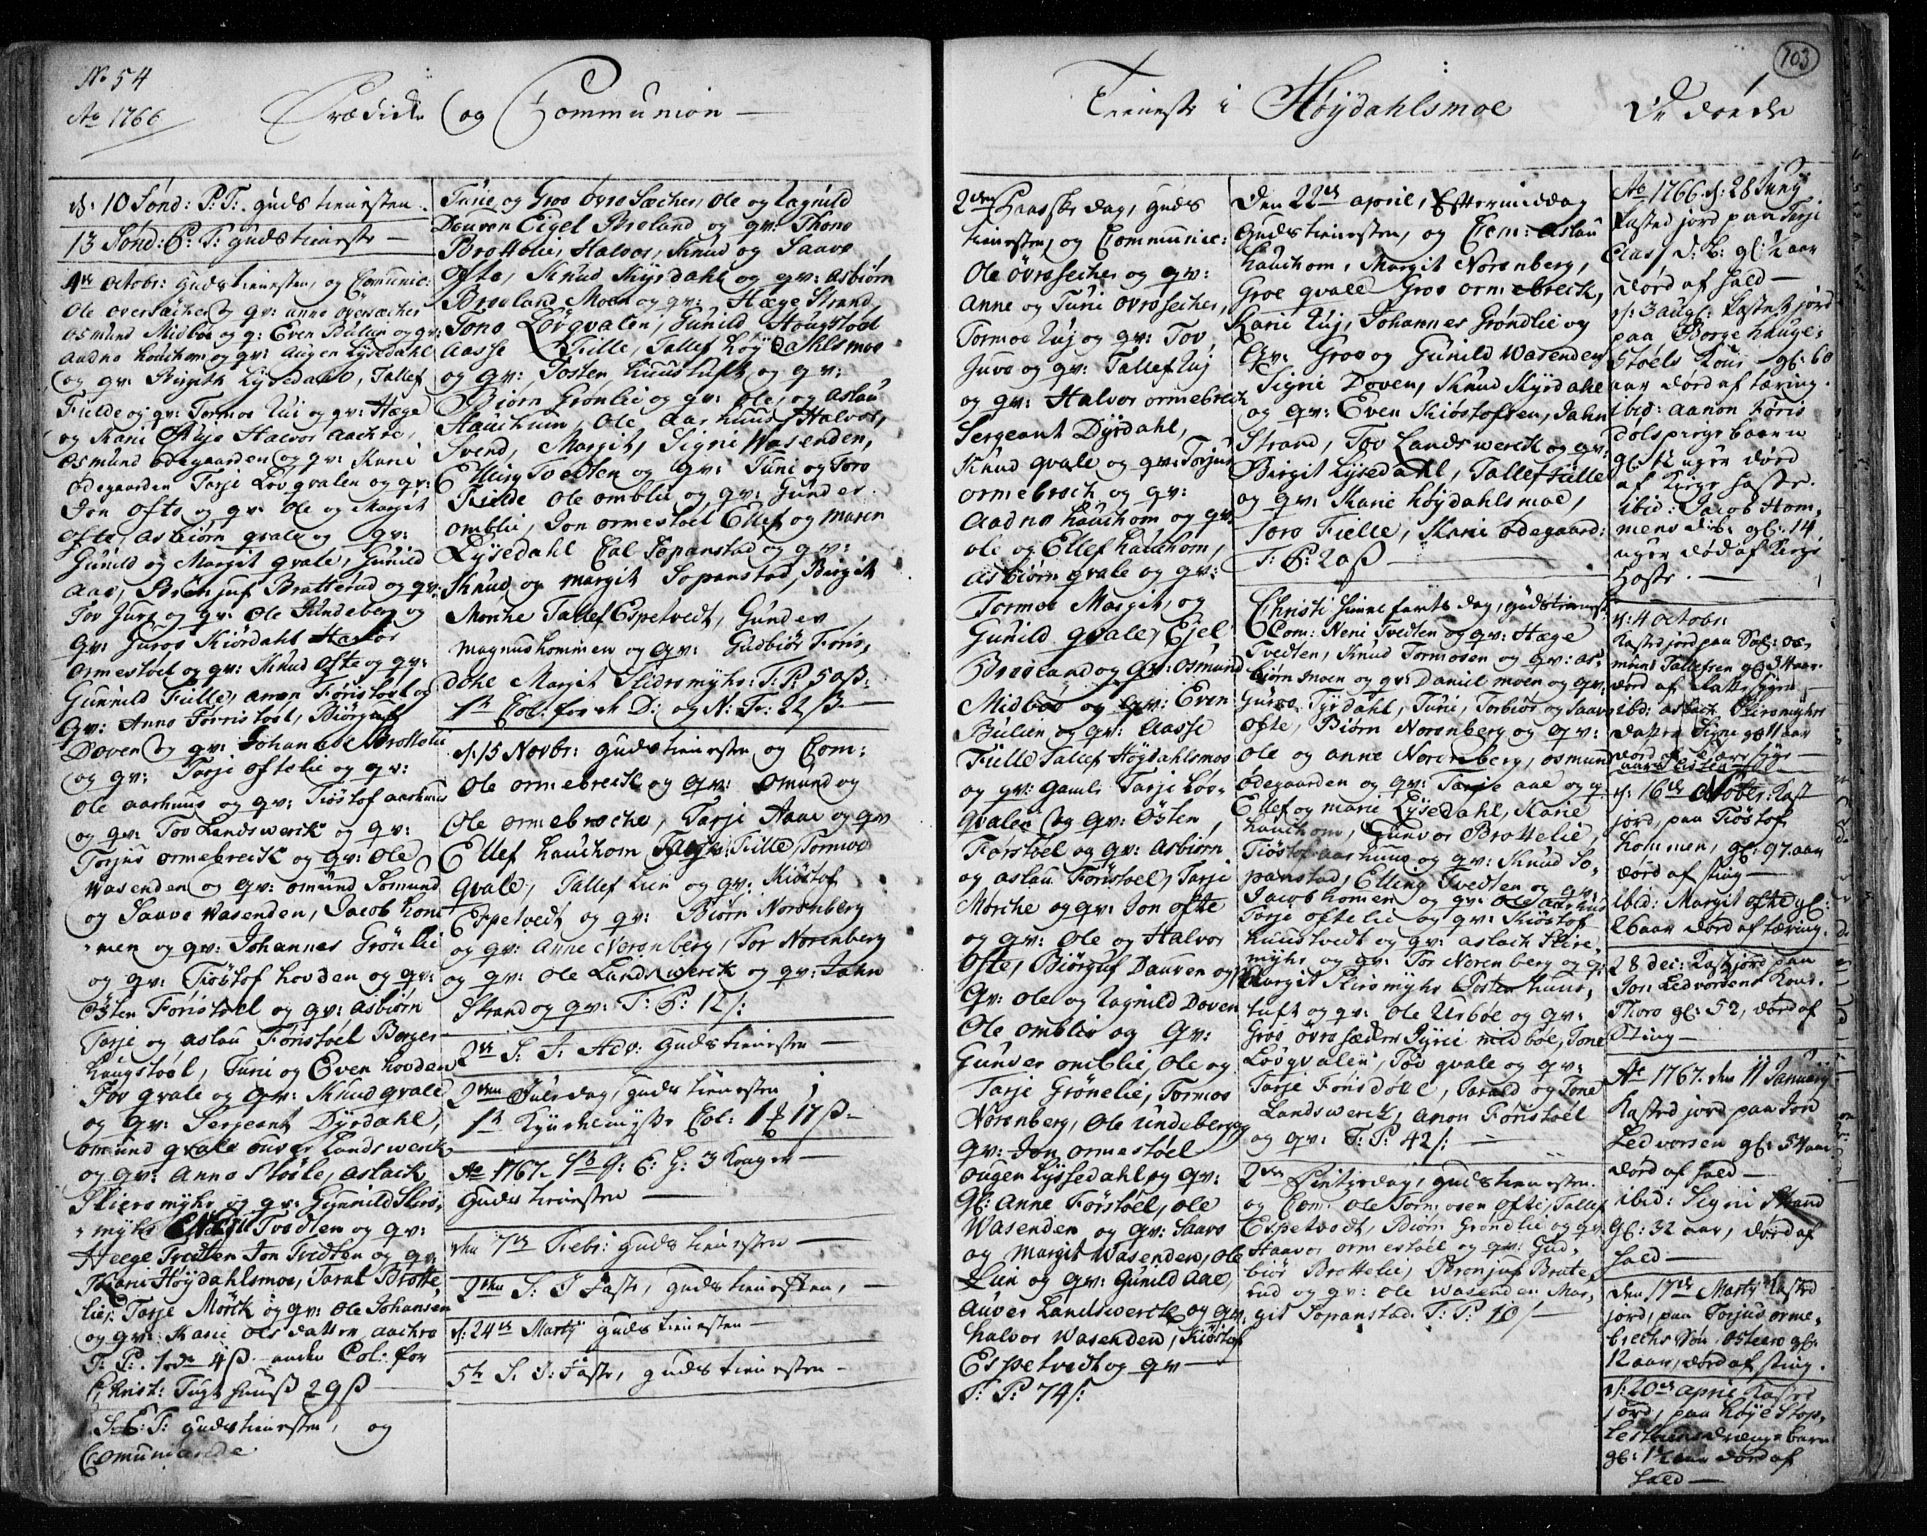 No 54
Ao 1766
Prædicke og Communion —
d: 10 Sønd: P: T: gudstienesten.
13 Sønd: P: T: gudstieneste —
4de octobr: gudstienesten, og Comunic:
Ole oversæcher og qv: anne oversæcher
osmund Midbøe og q: Even Bulien og qv:
aadne hauchom og qv: Augen Lysedahl
og qv: Birgith Lysedahl, Tallef
Fielde og qv: Tormoe Ruj og qv: Hæge
og Karie Halvor aachre,
osmund ødegaarden og qv: Karie
ødegaarden Tarje Løvqvalen og qv:
Jon ofte og qv: Ole og Margit
ofte, asbiørn qvale og qv:
Gunild og Margit qvale, Gunild
Aas, Brønjuf Bratterud og qv:
Tov Juve og qv: Ole Lindeberg og
qv: Juros Kiørdahl
ormestoel og qv: Knud ofte og qv:
Gunnild Fille, anon Foristoel og
qv: Anne Forristøel, Biørguf
Doven og qv: Johannes Brottelie
og qv: Tarje oftelie og qv:
ole aarhuus og qv: Tiøstof aarhuus
og qv: Tov Landswerck og qv:
Torjus ormebreck og qv: Ole
Wasenden og qv: omund Somund
og Saave Wasenden, Jacob hom
men og qv: Johannes Grønlie
og qv: Tiøstof hovden og qv:
østen Foristoel og qv: asbiørn
Tarje og aslau Foristøel Borger
haugstøel, Turie og Even hovden
Tov qvale og qv: Knud qvale
og qv: Serjeant Dyrdahl,
omund qvale ouver Landswerck
og qv: Anne Møsle, aslack
Skiersmyhr og qv: Gunnild Skirs,
myhr Tvedten og qv:
Heege Tvedten Jon Tvedten og qv:
Karie Høydahlsmoe, Taral Brotte,
lie, Tarje Mørck og qv: Ole Johansen
og qv: Karie olsdatter aachre
T: P: 4ß anden Col: for
Christ: Tugthuuß 29ß
S: E: T: gudstienesten, og
Comunicerede
Turie og Groe øvre Sæcher, Ole og Ragnild
Douven Eigel Broland og qv: Thone
Brottelie, Halvor, Knud og Saave
ofte, Knud Kyrdahl og qv: Asbiørn
Broeland Moen og qv: Hæge Strand,
Tone Løvqvalen, Gunild Hougstøel
Aasse Fille, Tallef Høydahlsmoe
og qv: Josten huustuft og qv:
Biørn Grønlie og qv: Ole, og aslau
Hauchum, Ole aarhuus Halvor,
Svend, Margit, Signe Wasenden,
Elling Tvedten og qv: Turie og Toro
Fielde ole omblie og qv: Gunder
omblie, Jon ormestoel Ellef og maren
Lysedahl Eal Sopanstad og qv:
Knud og margit Sopanstad, Birgit
Morche Tallef Espetvedt, Gunder
magnushommen og qv: Gudbiør Foris,
dahl Margit Skirsmyhr: T: P: 50ß:
1te Col: for D: og N: Fr: 22ß —
d: 15 Novbr: gudstienesten og Com:
Ole ormebreck og qv: Omund og
Ole ormebreche, Tarje Aase og qv
Ellef hauchom Fille Tormoe
qvale, Tallef Lien og qv: Kiøstof
Espetvedt og qv: Biørn Norenberg
og qv: Anne Norenberg, Tor Norenberg
og qv: Ole Landswerck og qv: Jahn
Strand og qv: T: P: 12/:
2den S: J: Adv: gudstienesten —
2den Juledag, gudstienesten
1te Kyndelmysse Col: 1 17ß —
Ao 1767. S: E: H: 3 Konger —
Gudstienesten —
den 7de Febr: gudstienesten —
2den S: J Faste, gudstienesten, —
d: 24de Marty gudstienesten —
5te S: J: Faste, gudstienesten —
Tieneste i Høydahlsmoe
De døede
103
2den Paaske dag, guds
tienesten, og Communice:
Ole øvreseiher og qv:
Anne og Turie øvreseiher,
Tormoe Ruj og qv: Tov
Juve og qv: Tallef Ruj
og qv: Halvor ormebreck
Sergeant Dyrdahl,
Knud qvale og qv: Torjus
ormebreck og qv:
Aadne hauchom og qv:
ole og Ellef hauchom,
Asbiørn qvale og qv:
Tormoe Margit, og
Gunild qvale, Ejel
Broeland og qv: osmund
Midboe og qv: Even
Bulien og qv: Aasse
Fille Tallef Høydahlsmoe
og qv: gamle Tarje Løv,
qvalen og qv: Østen,
Forstoel og qv: Asbiørn
og aslau Foristoel, Tarje
Morche og qv: Jon ofte
og qv: Ole og Halvor
ofte, Biørguf Dauven og
qv: ole og Ragnild Doven
Ole omblie og qv:
Gunder omblie, Ole og
Tarje Grønelie, Tormoe
Norenberg, Ole Lindeberg og
qv: Jon ormestøel
ougen Lyssedahl og qv:
gl: Anne Førstoel, ole
Wasenden og qv: Saave
og Margit Wasenden, ole
Lien og qv: Gunild Aae,
Auver Landswerck og qv:
halvor Wasenden, Kiøstof
Espetvedt og qv —
T: P: 74/:
Den 22de april, Eftermiddag
Gudstienesten, og Com: Aslau
hauchom, Margit Norenberg,
Groe qvale Groe ormebreck,
Karie Ruj, Johannes Grondlie og
qv: Groe og Gunild Wasenden
Signe Doven, Knud Kyrdahl
og qv: Even Kiøstofsen, Jahn
Strand, Tov Landswerck og qv:
Birgit Lysedahl, Tallef Fille
og qv: Karie høydahlsmoe,
Toro Fielle, Karie ødegaard:
T: P: 20ß —
Christi Himmelfarts dag, gudstienest
Com: Neri Tvedten og qv: Hæge
Tvedten, Knud Tormosen og qv: As,
biørn moen og qv: Daniel moen og qv:
Guroe Tyrdahl, Turie, Torbiør og Saave
ofte, Biørn Norenberg og qv:
ole og anne Norenberg, osmund
ødegaarden og qv: Tarje aae og q
Ellef og marie Lysedahl, Karie
hauchom, Gunvor Brottelie,
Tiøstof aarhuus og qv: Knud So,
panstad, Elling Tvedten og qv:
Jacob homen og qv: ole aarhuus
Tarje oftelie og qv: Kiøstof
huustvedt og qv: aslach Skire,
myhr og qv: Tor Norenberg og q:
Margit Skirsmyhr Josten huus,
tuft og qv: ole Urboe og qv:
Groe øvre sæcher Jyrie midbøe, Tone
Løvqvalen, Tov qvale og qv:
Tarje Forisdahl, Tarald og Tone
Landswerck, anon Foristoel
og qv: T: P: 42/: —
2den Pintzedag, gudstienesten
og Com: ole Tormosen ofte, Tallef
Espetvedt, Biørn Grondlie og qv
Haavor ormestøel og qv: Gud,
biør Brottelie, Bronjuf Brate,
rud og qv: ole Wasenden Mar,
git Sopanstad. T: P: 10/: —
Ao 1766. d: 28 Juny
Kasted jord paa Tarje
Aas D: B: gl: 4 aar
dørd af hald —
d: 3 augl: Kastet jord
paa Borge hauge,
støels Kone, gl: 60
aar dørd af tæring.
ibid: aanon Foris
dols pige baarn
gl: 12 uger dørd
af Kirge hoste.
ibid: Jacob Hom,
mens dito gl: 14
uger død af Kirge
Hoste. —
d: 4 octobr:
Kasted jord paa Sal: os,
mund Tallefsen gl: 54 aar
dørd af Flatte syge
ibid: aslach Skiersmyhrs
datter Signe gl: 11 aar
d: 16de Novbr: Kast
jord, paa Tiøstof
hommen, gl: 97 aar
dørd af sting —
ibid: Margit ofte gl:
26 aar dørd af tæring.
28 dec: Kast jord paa
Jon Ledvorsens Kone,
Thore gl: 52, dørd af
Sting —
Ao 1767. den 11 January
Kasted jord paa Jon
Ledvorsen gl: 54 aar
dørd af hald —
ibid: Signe Strand
gl: 32 aar, dørd af
hald —
den 17de Marty Kasted
jord, paa Torjus orme,
brechs Søn. ostero gl:
12 aar, dørd af sting.
d: 20de april Kasted
jord, paa høye Stop,
lesteens drænge barn
gl: 1½ aar dørd af
hald —